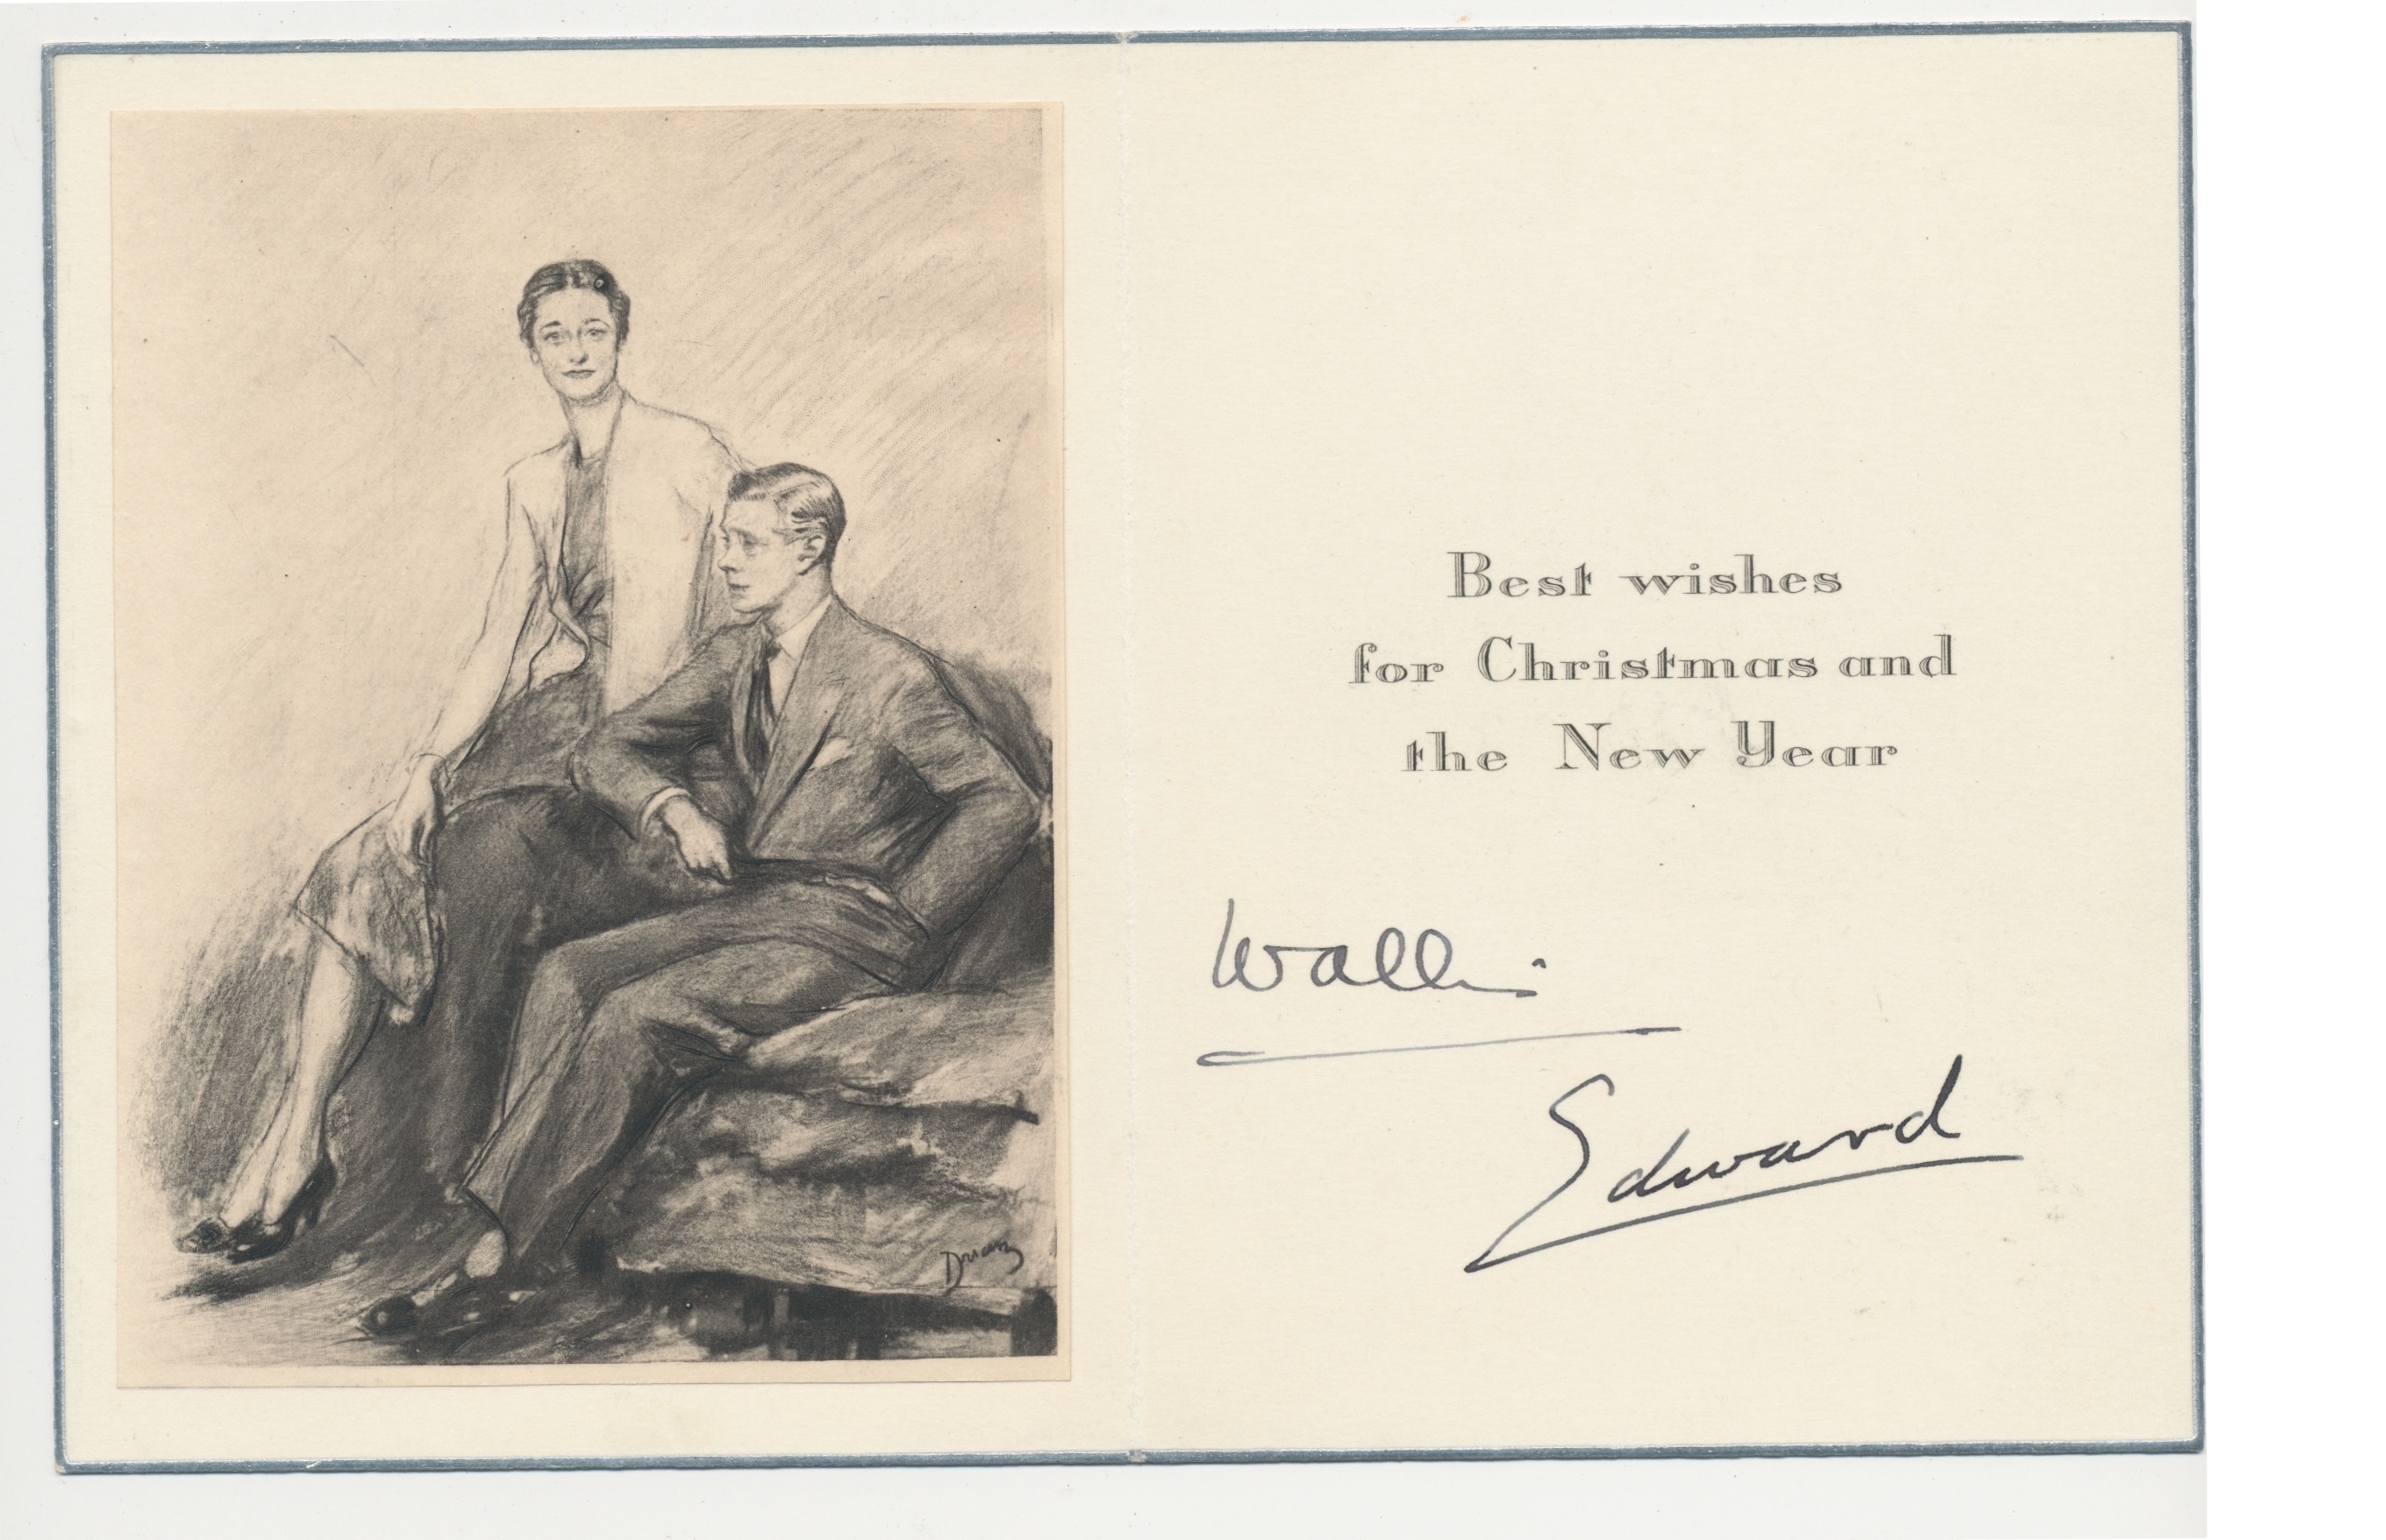 Drian
Best wishes
for Christmas and
the New Year
Wallis
Edward